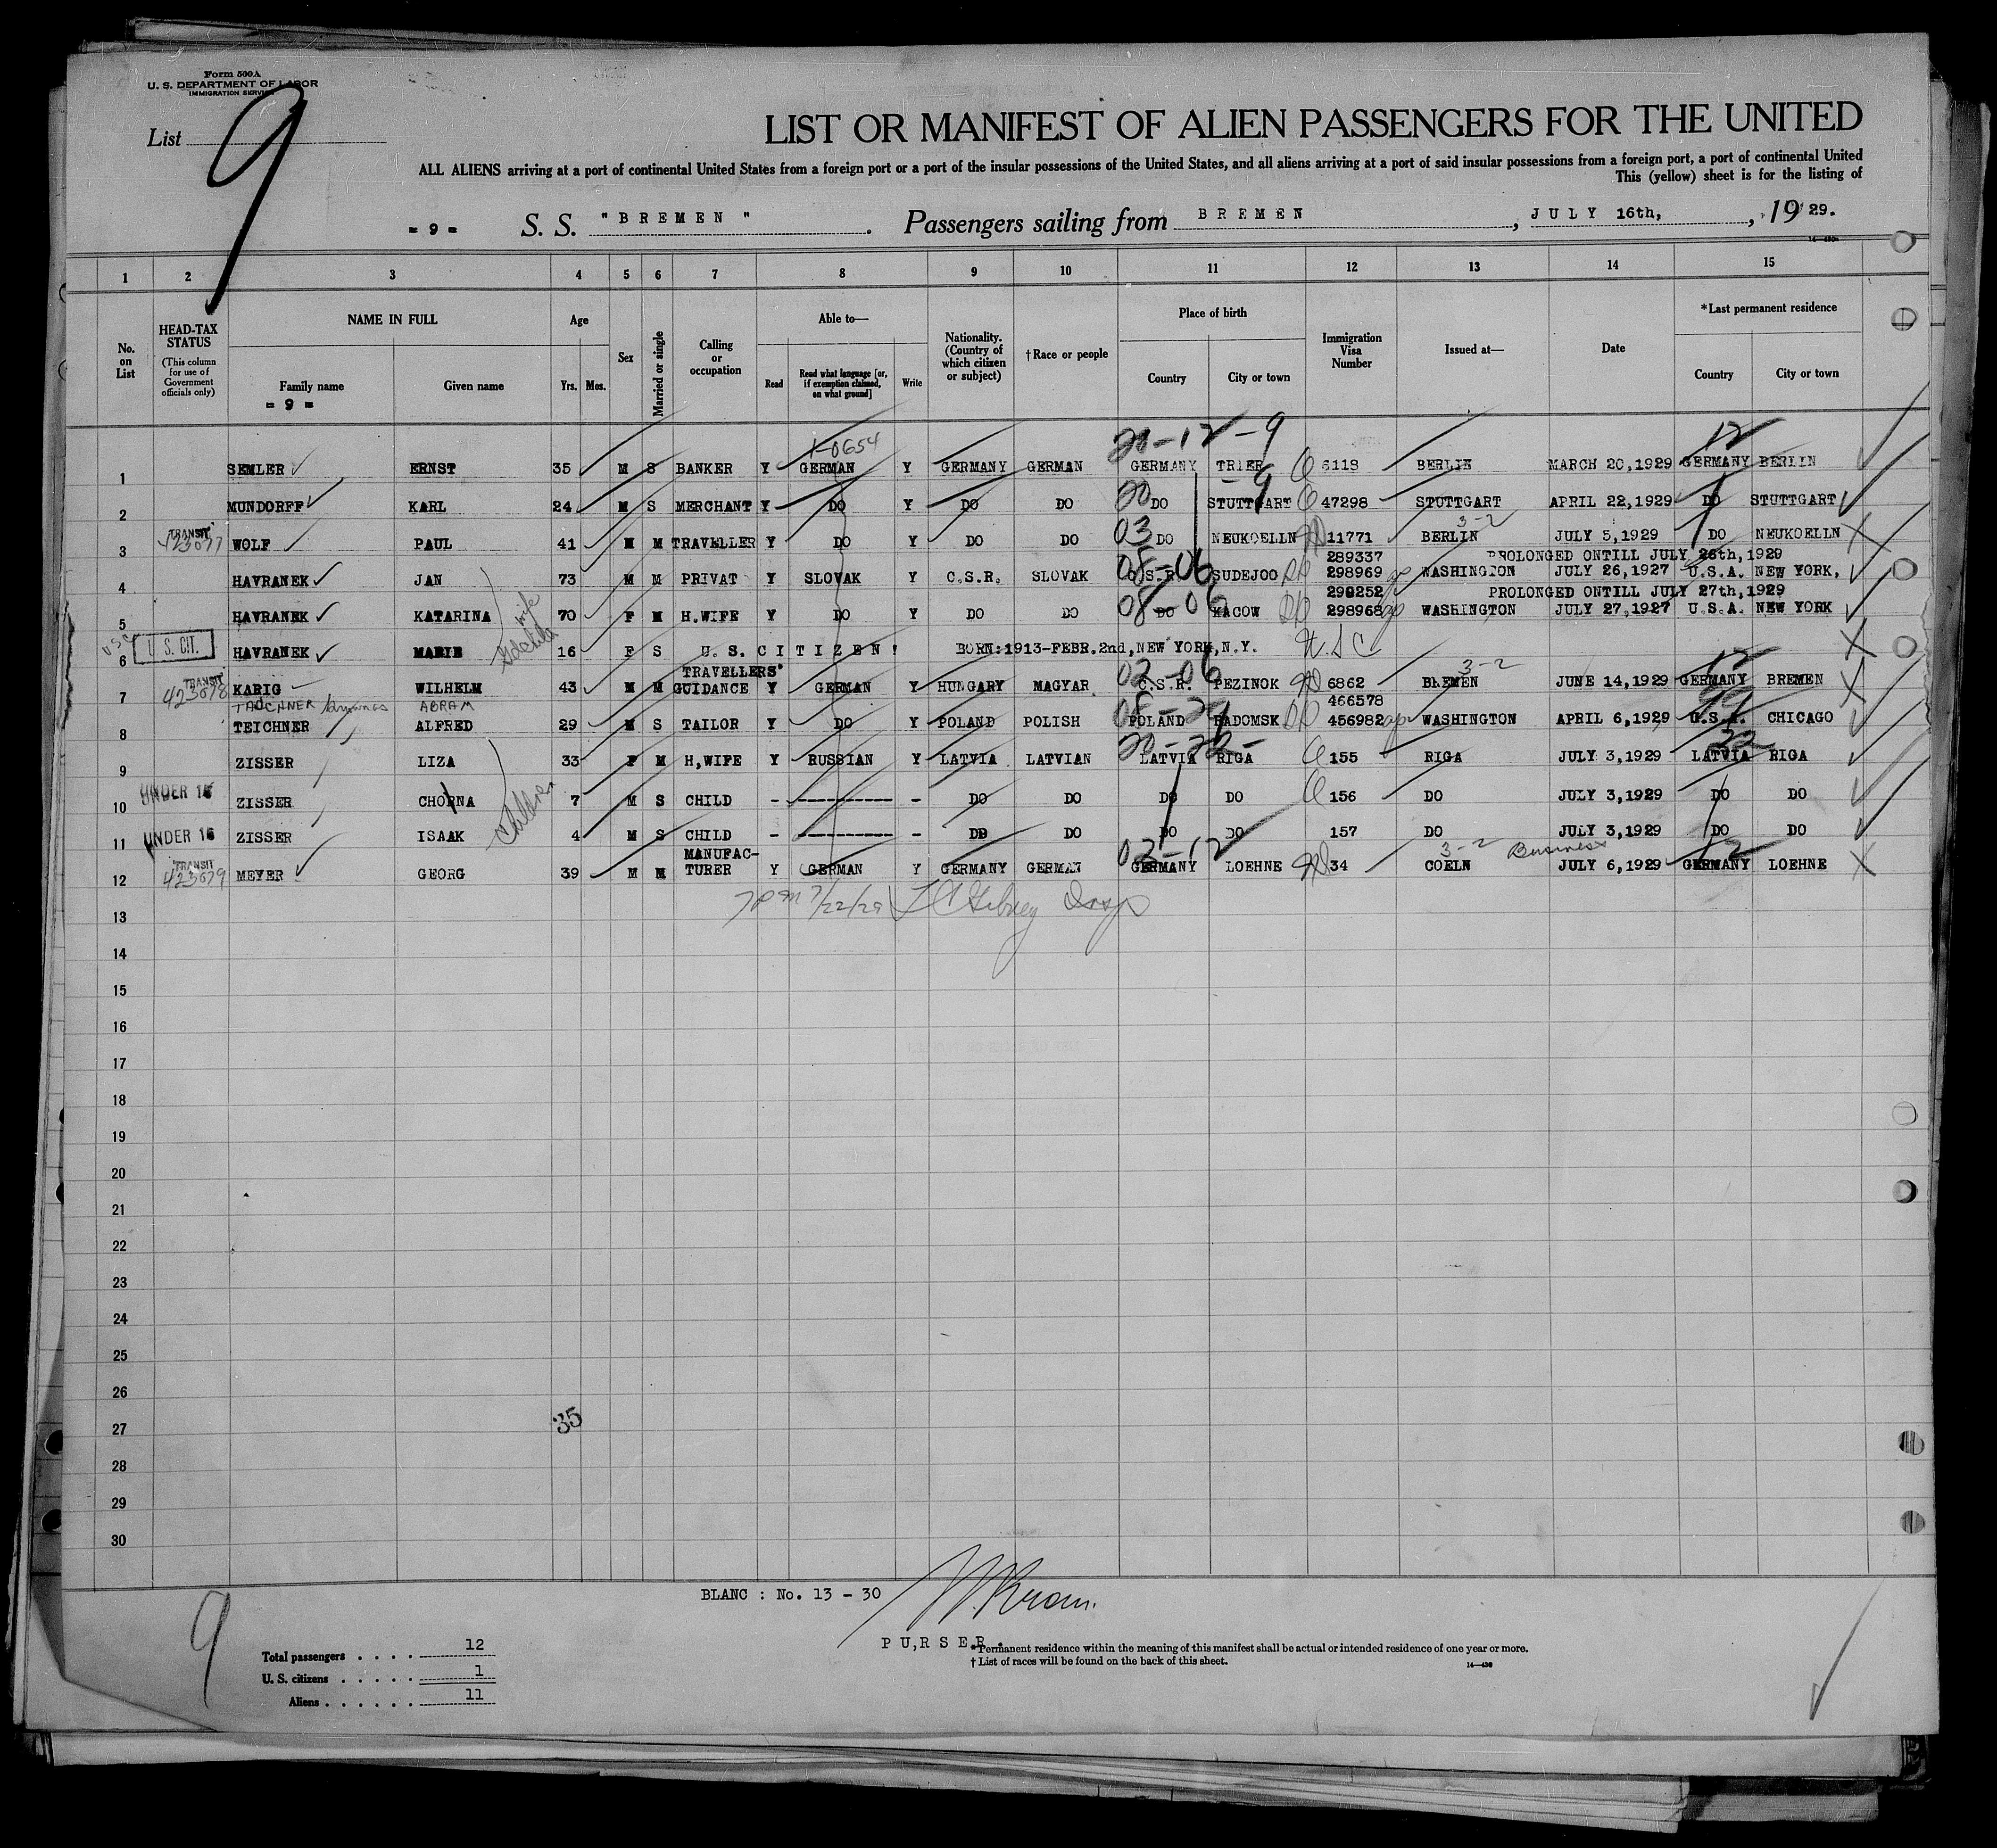 Form 500A
U. S. DEPARTMENT OF LABOR
IMMIGRATION SERVICE
List 9
LIST OR MANIFEST OF ALIEN PASSENGERS FOR THE UNITED
ALL ALIENS arriving at a port of continental United States from a foreign port or a port of the insular possessions of the United States, and all aliens arriving at a port of said insular possessions from a foreign port, a port of continental United
This (yellow) sheet is for the listing of
= 9 = S. S. "BREMEN". Passengers sailing from BREMEN, JULY 16th, , 1929.
1 2 3 4 5 6 7 8 9 10 11 12 13 14 15
No. on List
HEAD-TAX STATUS
(This column for use of Government officials only)
NAME IN FULL
Family name
Given name
= 9 =
Age
Yrs. Mos.
Sex
Married or single
Calling or occupation
Able to—
Read
Read what language [or, if exemption claimed, on what ground]
Write
Nationality. (Country of which citizen or subject)
†Race or people
Place of birth
Country
City or town
Immigration Visa Number
Issued at—
Date
*Last permanent residence
Country
City or town
20-12-9 12
1 SEMLER ERNST 35 M S BANKER Y GERMAN Y GERMANY GERMAN GERMANY TRIER 6118 BERLIN MARCH 20,1929 GERMANY BERLIN
2 MUNDORFF KARL 24 M S MERCHANT Y DO Y DO DO 20 DO STUTTGART 9 47298 STUTTGART APRIL 22,1929 DO STUTTGART
3-2
3 TRANSIT 423077 WOLF PAUL 41 M M TRAVELLER Y DO Y DO DO 03 DO NEUKOELLN 11771 BERLIN JULY 5,1929 DO NEUKOELLN
289337 PROLONGED ONTILL JULY 26th,1929
4 HAVRANEK JAN 73 M M PRIVAT Y SLOVAK Y C.S.R. SLOVAK 08-06 C.S.R. SUDEJOO 298969 WASHINGTON JULY 26,1927 U.S.A. NEW YORK,
wife
298252 PROLONGED ONTILL JULY 27th,1929
5 HAVRANEK KATARINA 70 F M H.WIFE Y DO Y DO DO 08-06 DO KACOW 298968 WASHINGTON JULY 27,1927 U.S.A. NEW YORK
6 USC U. S. CIT. HAVRANEK MARIE 16 F S U.S. CITIZEN! BORN:1913-FEBR.2nd,NEW YORK,N.Y. U S C
TRAVELLERS' 02-06 3-2 12
7 TRANSIT 423078 KARIG WILHELM 43 M M GUIDANCE Y GERMAN Y HUNGARY MAGYAR C.S.R. PEZINOK 6862 BREMEN JUNE 14,1929 GERMANY BREMEN
ABRAM 466578 99
8 TEICHNER ALFRED 29 M S TAILOR Y DO Y POLAND POLISH POLAND RADOMSK 456982 WASHINGTON APRIL 6,1929 U.S.A. CHICAGO
20-22- 22
9 ZISSER LIZA 33 F M H,WIFE Y RUSSIAN Y LATVIA LATVIAN LATVIA RIGA 155 RIGA JULY 3,1929 LATVIA RIGA
Children
10 UNDER 16 ZISSER CHORNA 7 M S CHILD - ---------- - DO DO DO DO 156 DO JULY 3,1929 DO DO
11 UNDER 16 ZISSER ISAAK 4 M S CHILD - ---------- - DO DO DO DO 157 DO JULY 3,1929 DO DO
MANUFAC- 03-12 3-2 Business
12 TRANSIT 423079 MEYER GEORG 39 M M TURER Y GERMAN Y GERMANY GERMAN GERMANY LOEHNE 34 COELN JULY 6,1929 GERMANY 12 LOEHNE
13 7 PM 7/22/29 Insp
14
15
16
17
18
19
20
21
22
23
24
25
26
27 35
28
29
30
BLANC : No. 13 - 30
PURSER.
9
Total passengers . . . . 12
U. S. citizens . . . . . 1
Aliens . . . . . . 11
*Permanent residence within the meaning of this manifest shall be actual or intended residence of one year or more.
† List of races will be found on the back of this sheet.
14—430